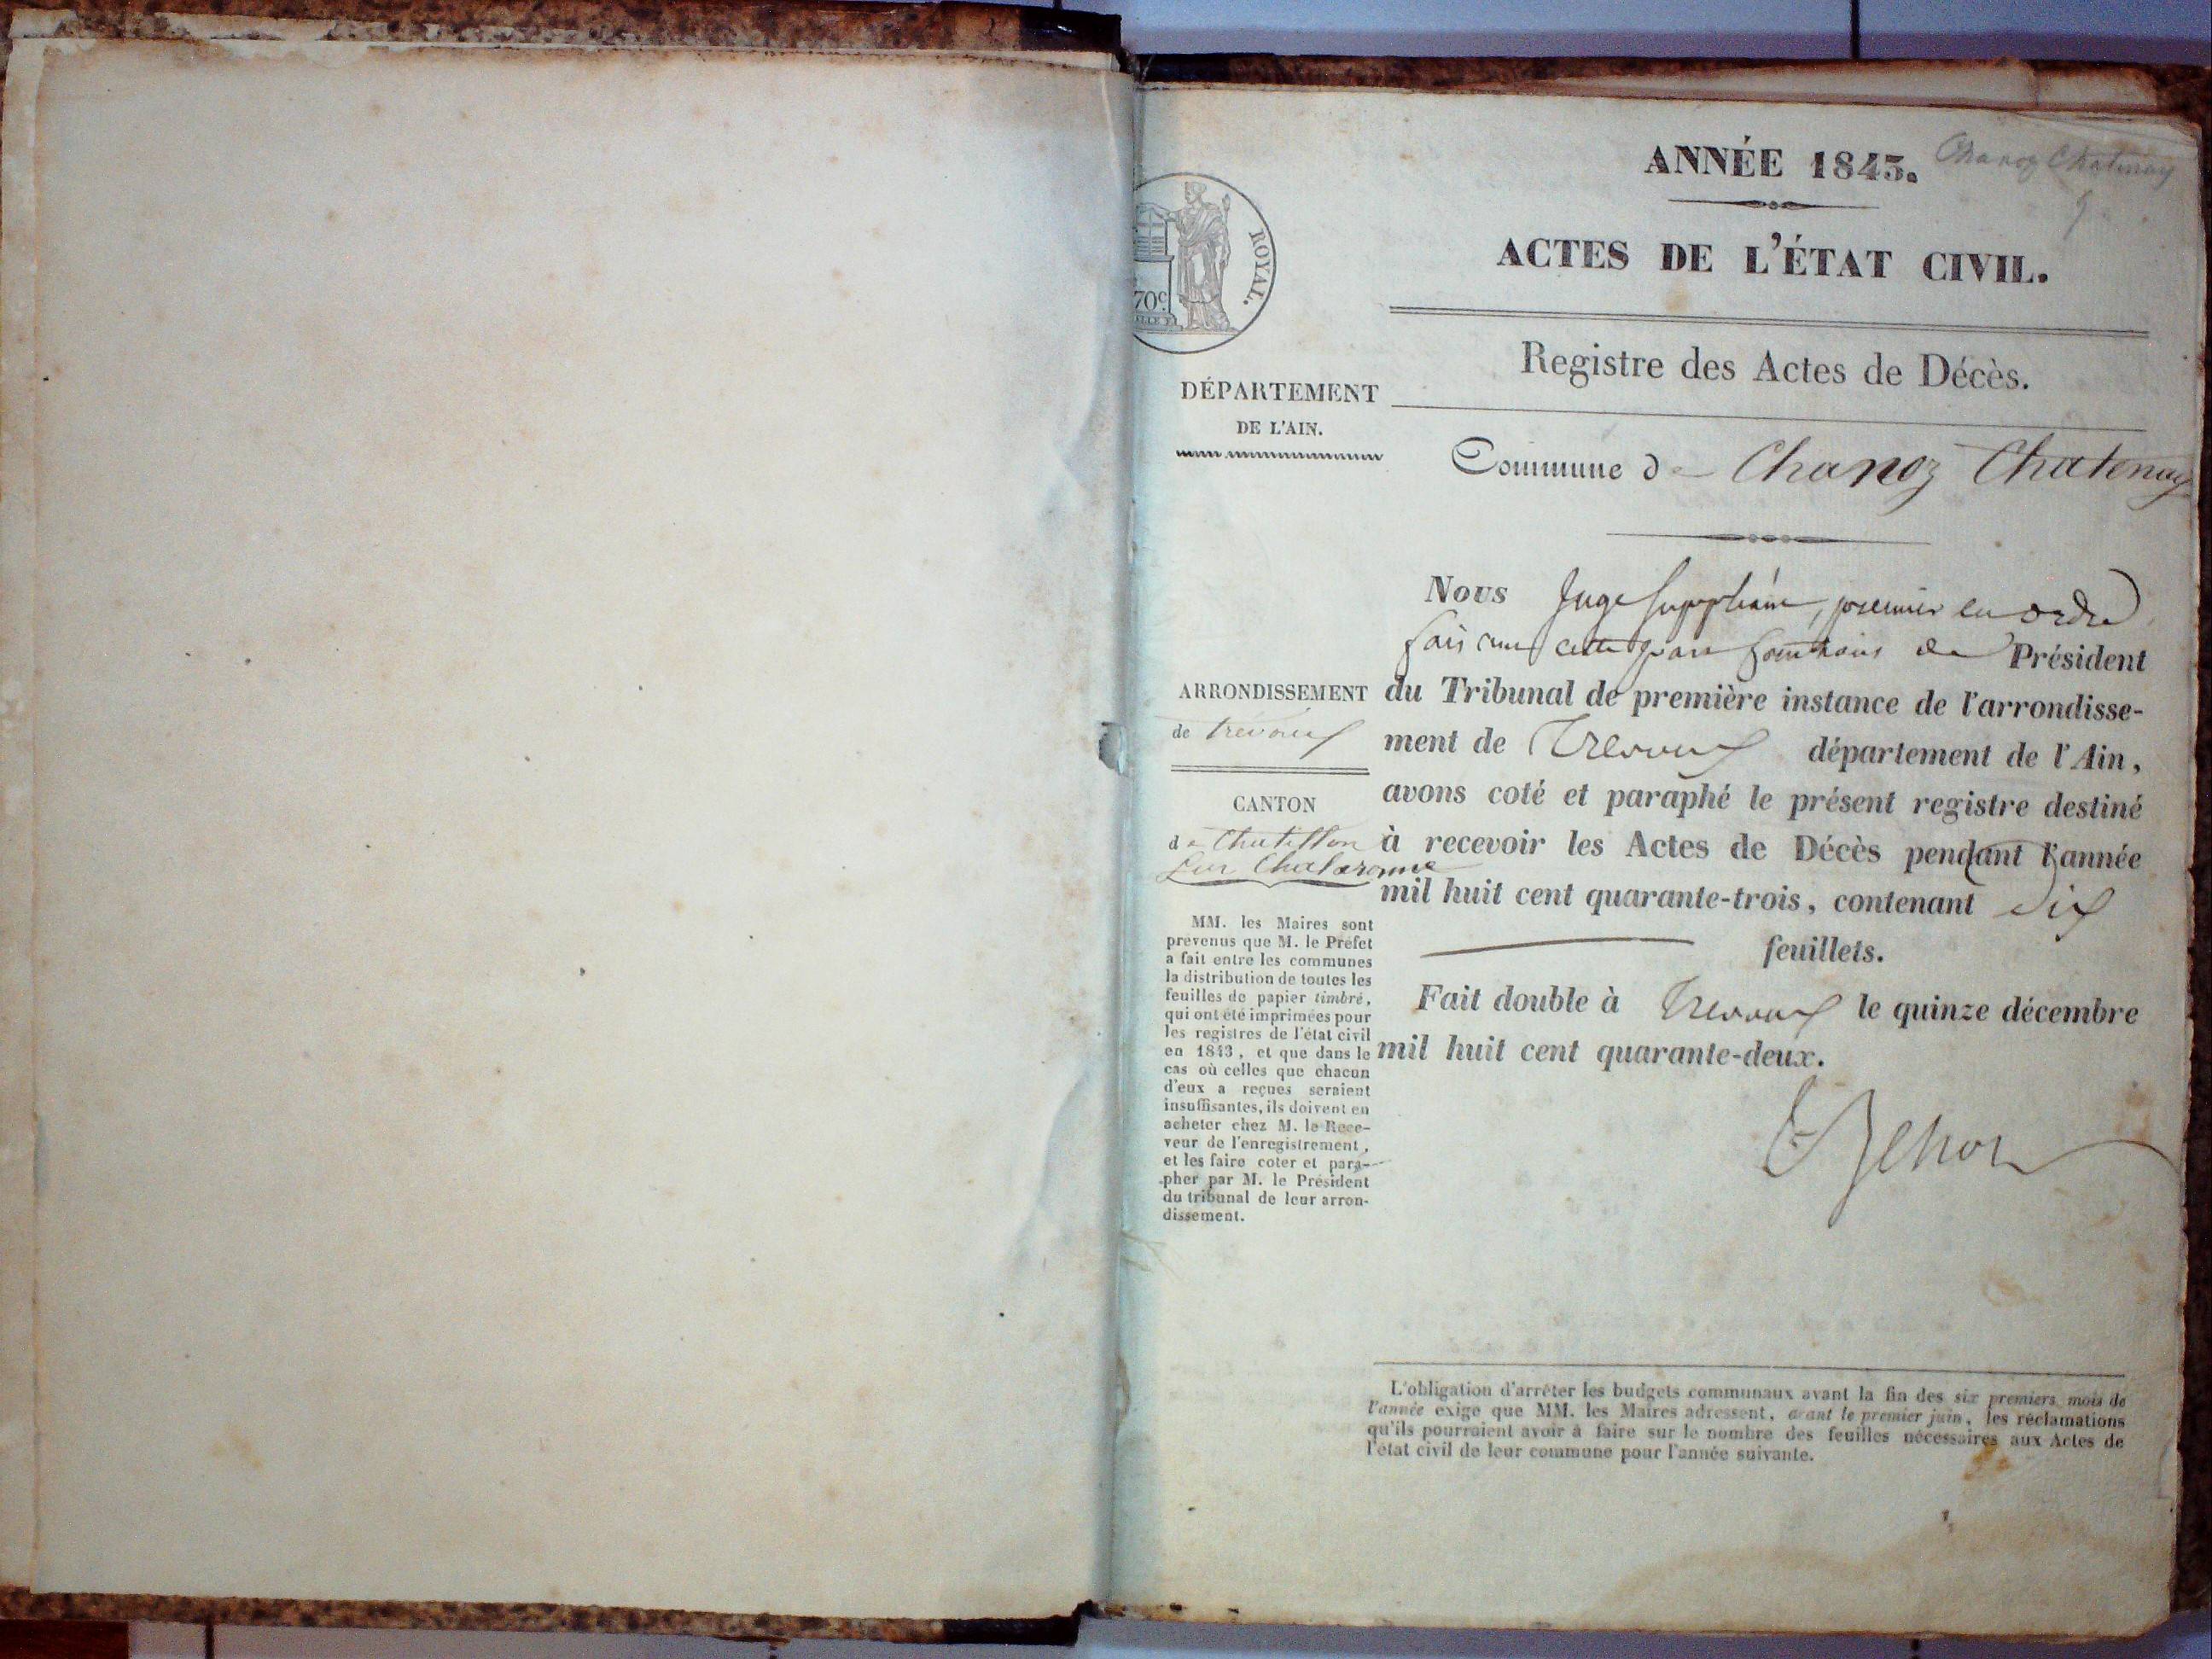 ANNÉE 1843.
Chanoz Chatenay
ACTES DE L'ÉTAT CIVIL.
ROYAL.
70c.
Registre des Actes de Décès.
DÉPARTEMENT
DE L'AIN.
Commune de Chanoz Chatenay
Nous Juge Suppléant, premier en ordre
fais cette fonctions de Président
du Tribunal de première instance de l'arrondisse-
ment de Trevoux département de l'Ain,
avons coté et paraphé le présent registre destiné
à recevoir les Actes de Décès pendant l'année
mil huit cent quarante-trois, contenant
feuillets.
Fait double à Trevoux le quinze décembre
mil huit cent quarante-deux.
ARRONDISSEMENT
de Trevoux
CANTON
de Chatillon
Sur Chalaronne
MM. les Maires sont
prévenus que M. le Préfet
a fait entre les communes
la distribution de toutes les
feuilles de papier timbré,
qui ont été imprimées pour
les registres de l'état civil
en 1843, et que dans le
cas où celles que chacun
d'eux a reçues seraient
insuffisantes, ils doivent en
acheter chez M. le Rece-
veur de l'enregistrement,
et les faire coter et para-
pher par M. le Président
du tribunal de leur arron-
dissement.
L'obligation d'arrêter les budgets communaux avant la fin des six premiers mois de
l'année exige que MM. les Maires adressent, avant le premier juin, les réclamations
qu'ils pourraient avoir à faire sur le nombre des feuilles nécessaires aux Actes de
l'état civil de leur commune pour l'année suivante.